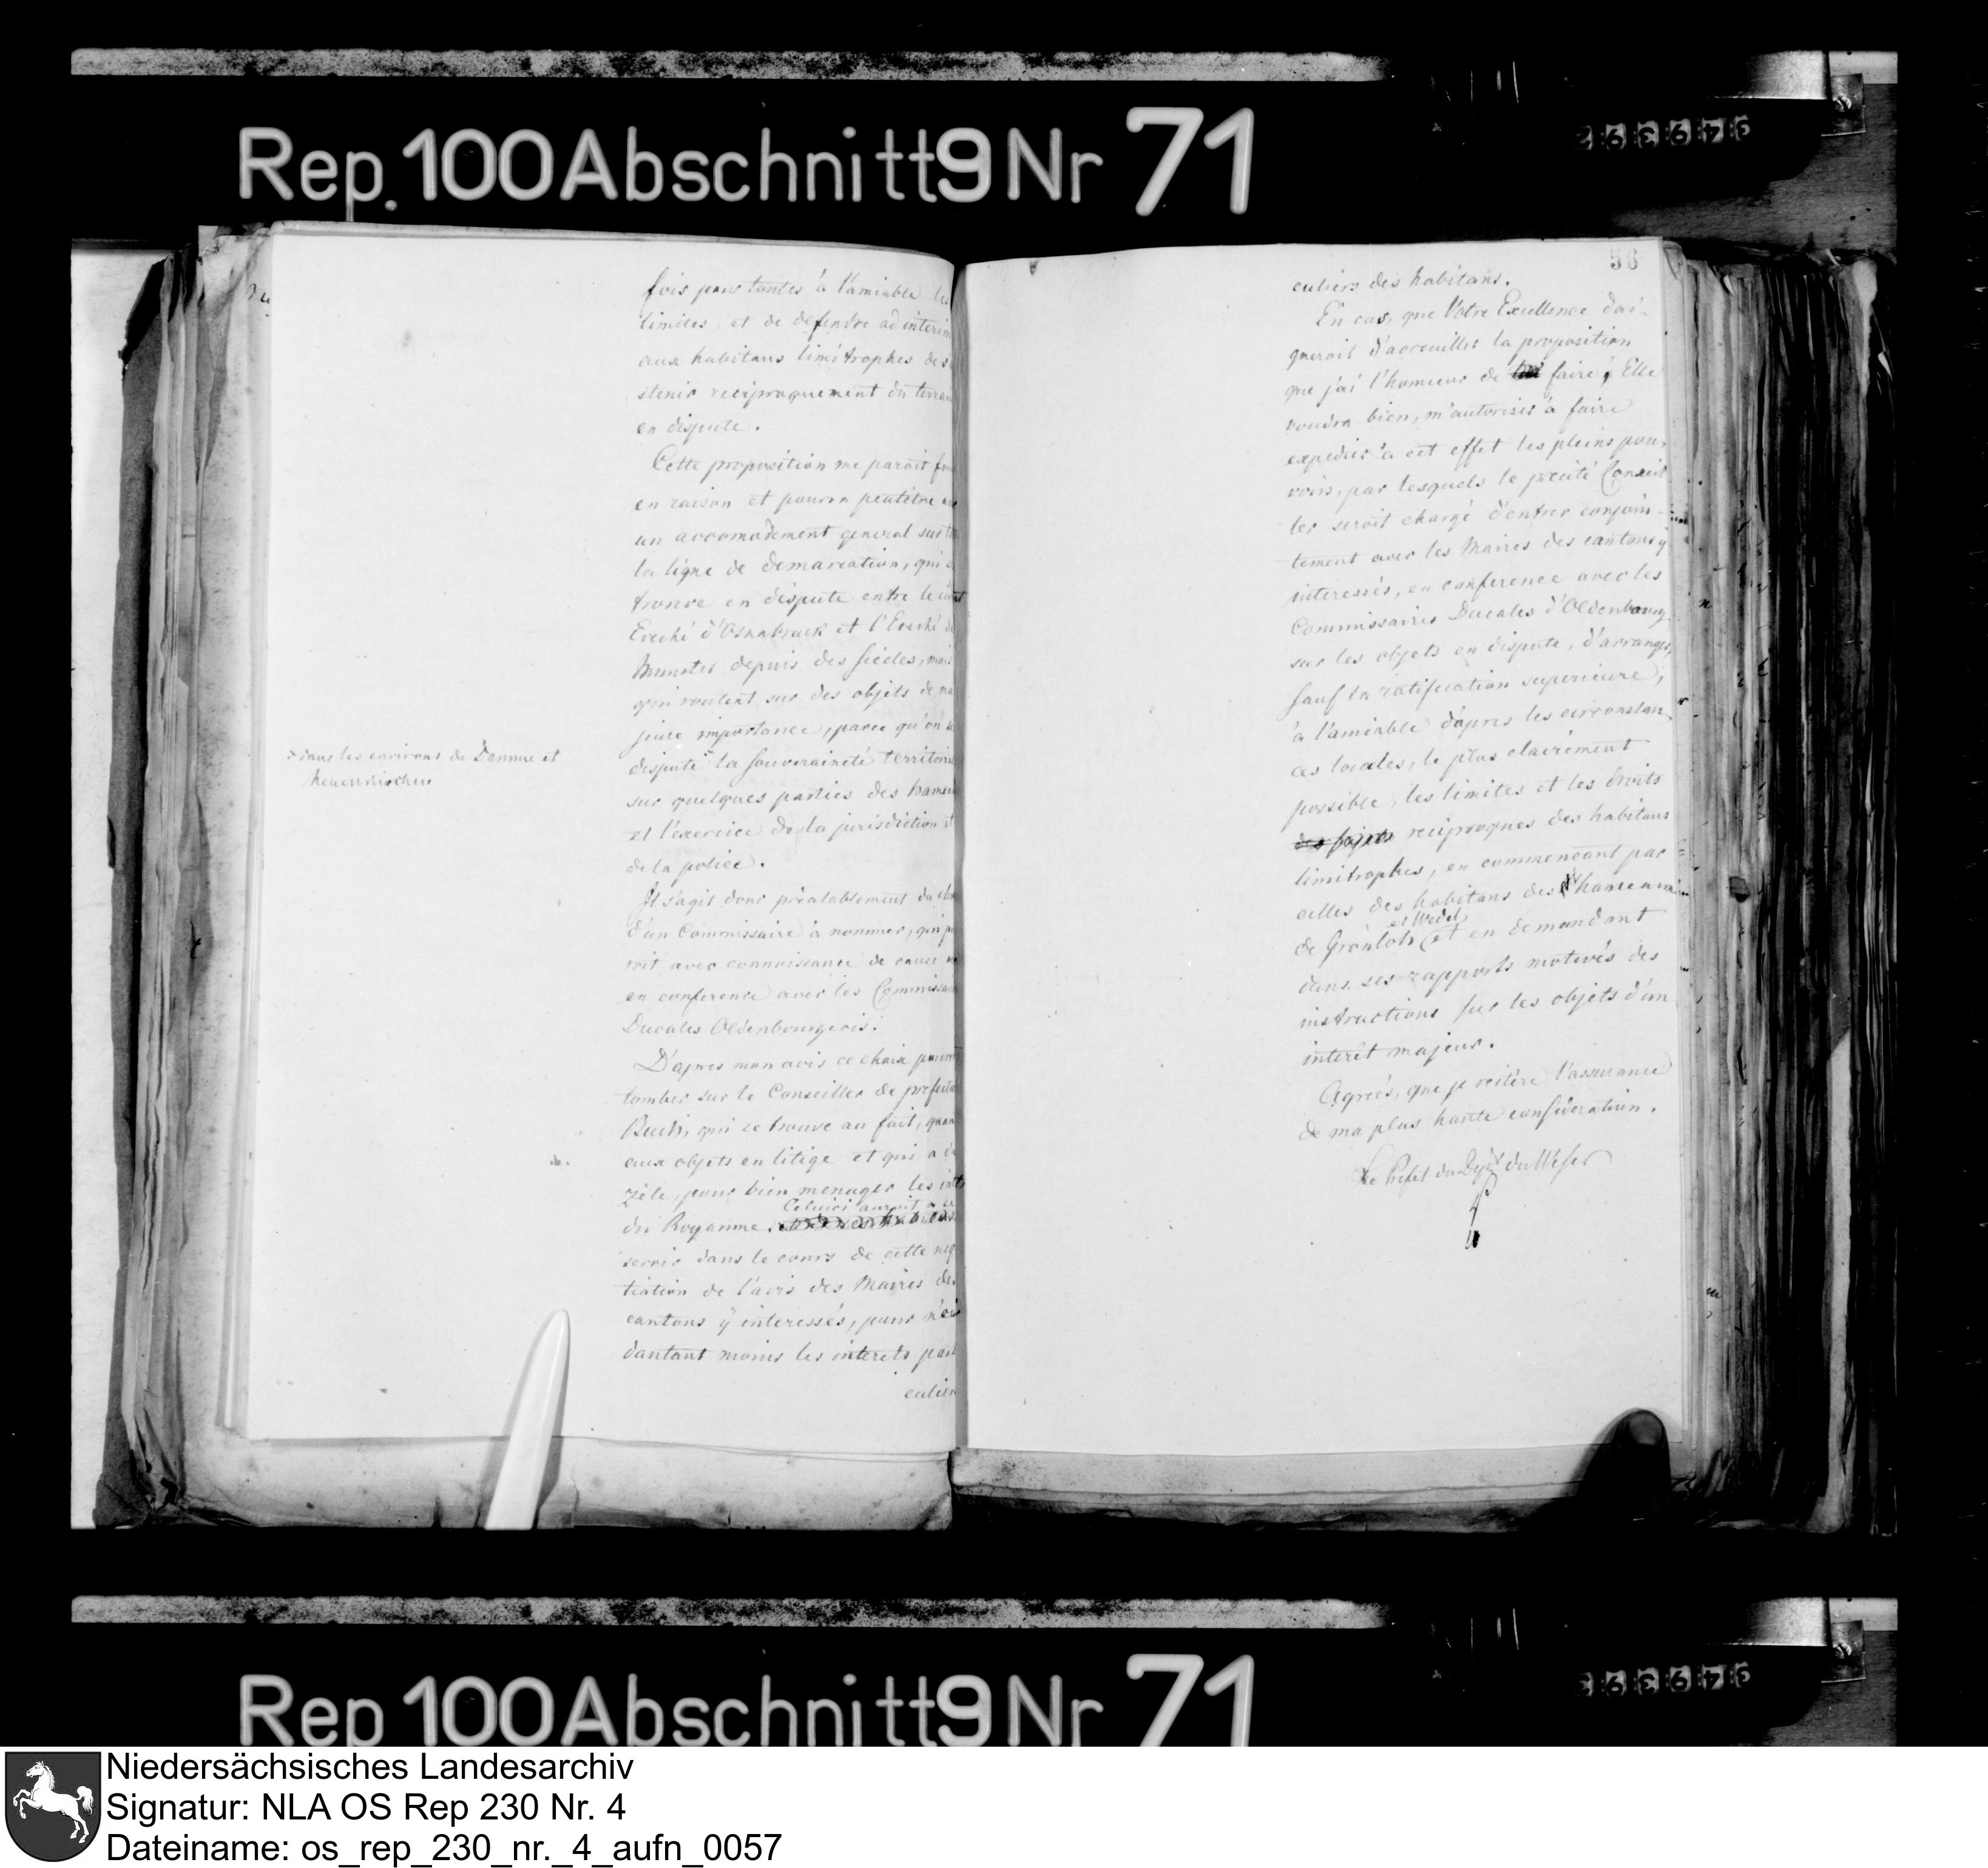 Rep. 100 Abschnitt 9 Nr 71
fois pour toutes à l'amiable les
limites, et de defendre ad interim
aux habitans limitrophes de s
stenir reciproquement du terrain
en dispute.
Cette proposition me paroit
en raison et pourra peutêtre
un accomodement general sur
la ligne de demarcation, qui
trouve en dispute entre le
Eveché d'Osnabruck et l'Eveché de
Munster depuis des siécles, mais
qui roulent sur des objets de ma
jeure importance, parce qu'on
dispute la souveraineté territoria
sur quelques parties des hameau
et l'exercice de la jurisdiction et
de la police.
dans les environs de Damme et
Neuenkirchen
Il s'agit donc préalablement du
d'un Commissaire à nommer, qui
roit avec connoissance de cause
en conference avec les Commissair
Ducales Oldenbourgeois.
D'apres mon avis ce choix
tomber sur le Conseiller de prefectu
qui se trouve au fait, quan
aux objets en litige et qui a
zèle, pour bien menager les
du Royaume. Celuici auroit a se
servir dans le cours de cette neg
tiation de l'avis des Maires des
cantons y interessés, pour
dautant moins les interets par
culier
56
culiers des habitans.
En cas, que Votre Excellence dai-
gneroit d'accueiller la proposition
que j'ai l'honneur de faire, Elle
voudra bien, m'autoriser à faire
expedier à cet effet les pleins pou-
voirs, par lesquels le precité Conseil
ler seroit chargé d'entrer conjoin-
tement avec les Maires des cantons y
interessés, en conference avec les
Commissaires Ducales d'Oldenbourg
sur les objets en dispute, d'arranger,
sauf la ratification superieure,
à l'amiable d'apres les circonstan
ces locales, le plus clairement
possible, les limites et les droits
des sujets reciproques des habitans
limitrophes, en commencant par
celles des habitans des hameaux
de Grönloh et Wedel et en demandant
dans ses rapports motivés des
instructions sur les objets d'un
interêt majeur.
Agreés, que je reitère l'assurance
de ma plus haute consideration.
Le Prefet du Dept du Weser
Rep 100 Abschnitt 9 Nr 71
Niedersächsisches Landesarchiv
Signatur: NLA OS Rep 230 Nr. 4
Dateiname: os_rep_230_nr._4_aufn_0057